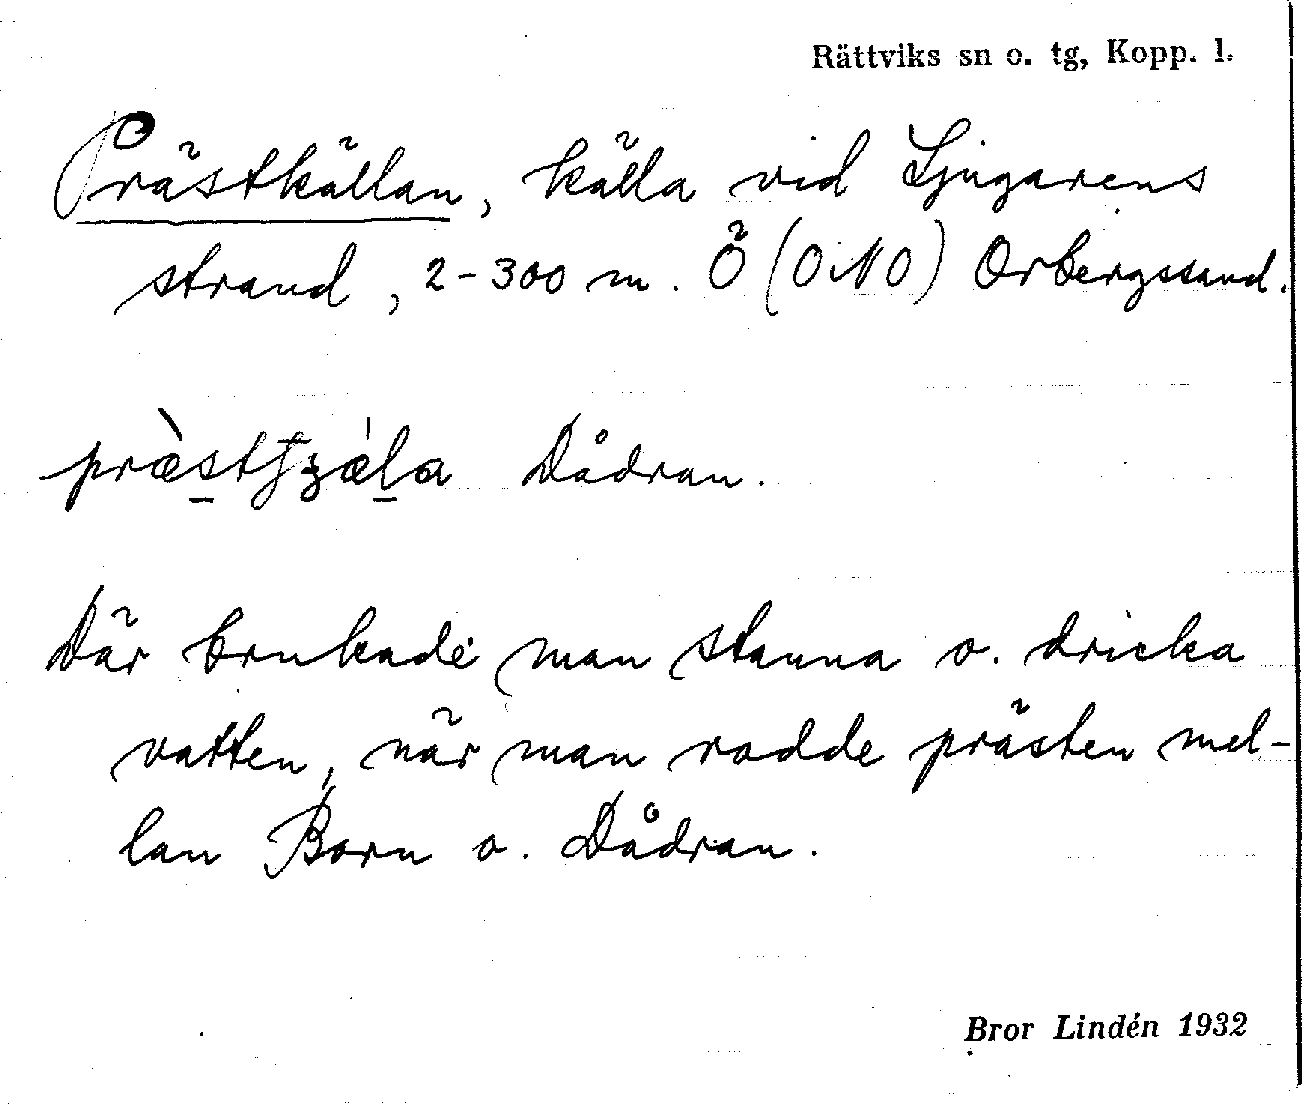 Rättviks sn o. tg, Kopp. l.
Prästkällan, källa vid Ljugarens
strand, 2-300 m. Ö (ONO) Orbergssand.
Dådran.
Där brukade man stanna o. dricka
vatten, när man rodde prästen mel-
lan Born o. Dådran.
Bror Lindén 1932